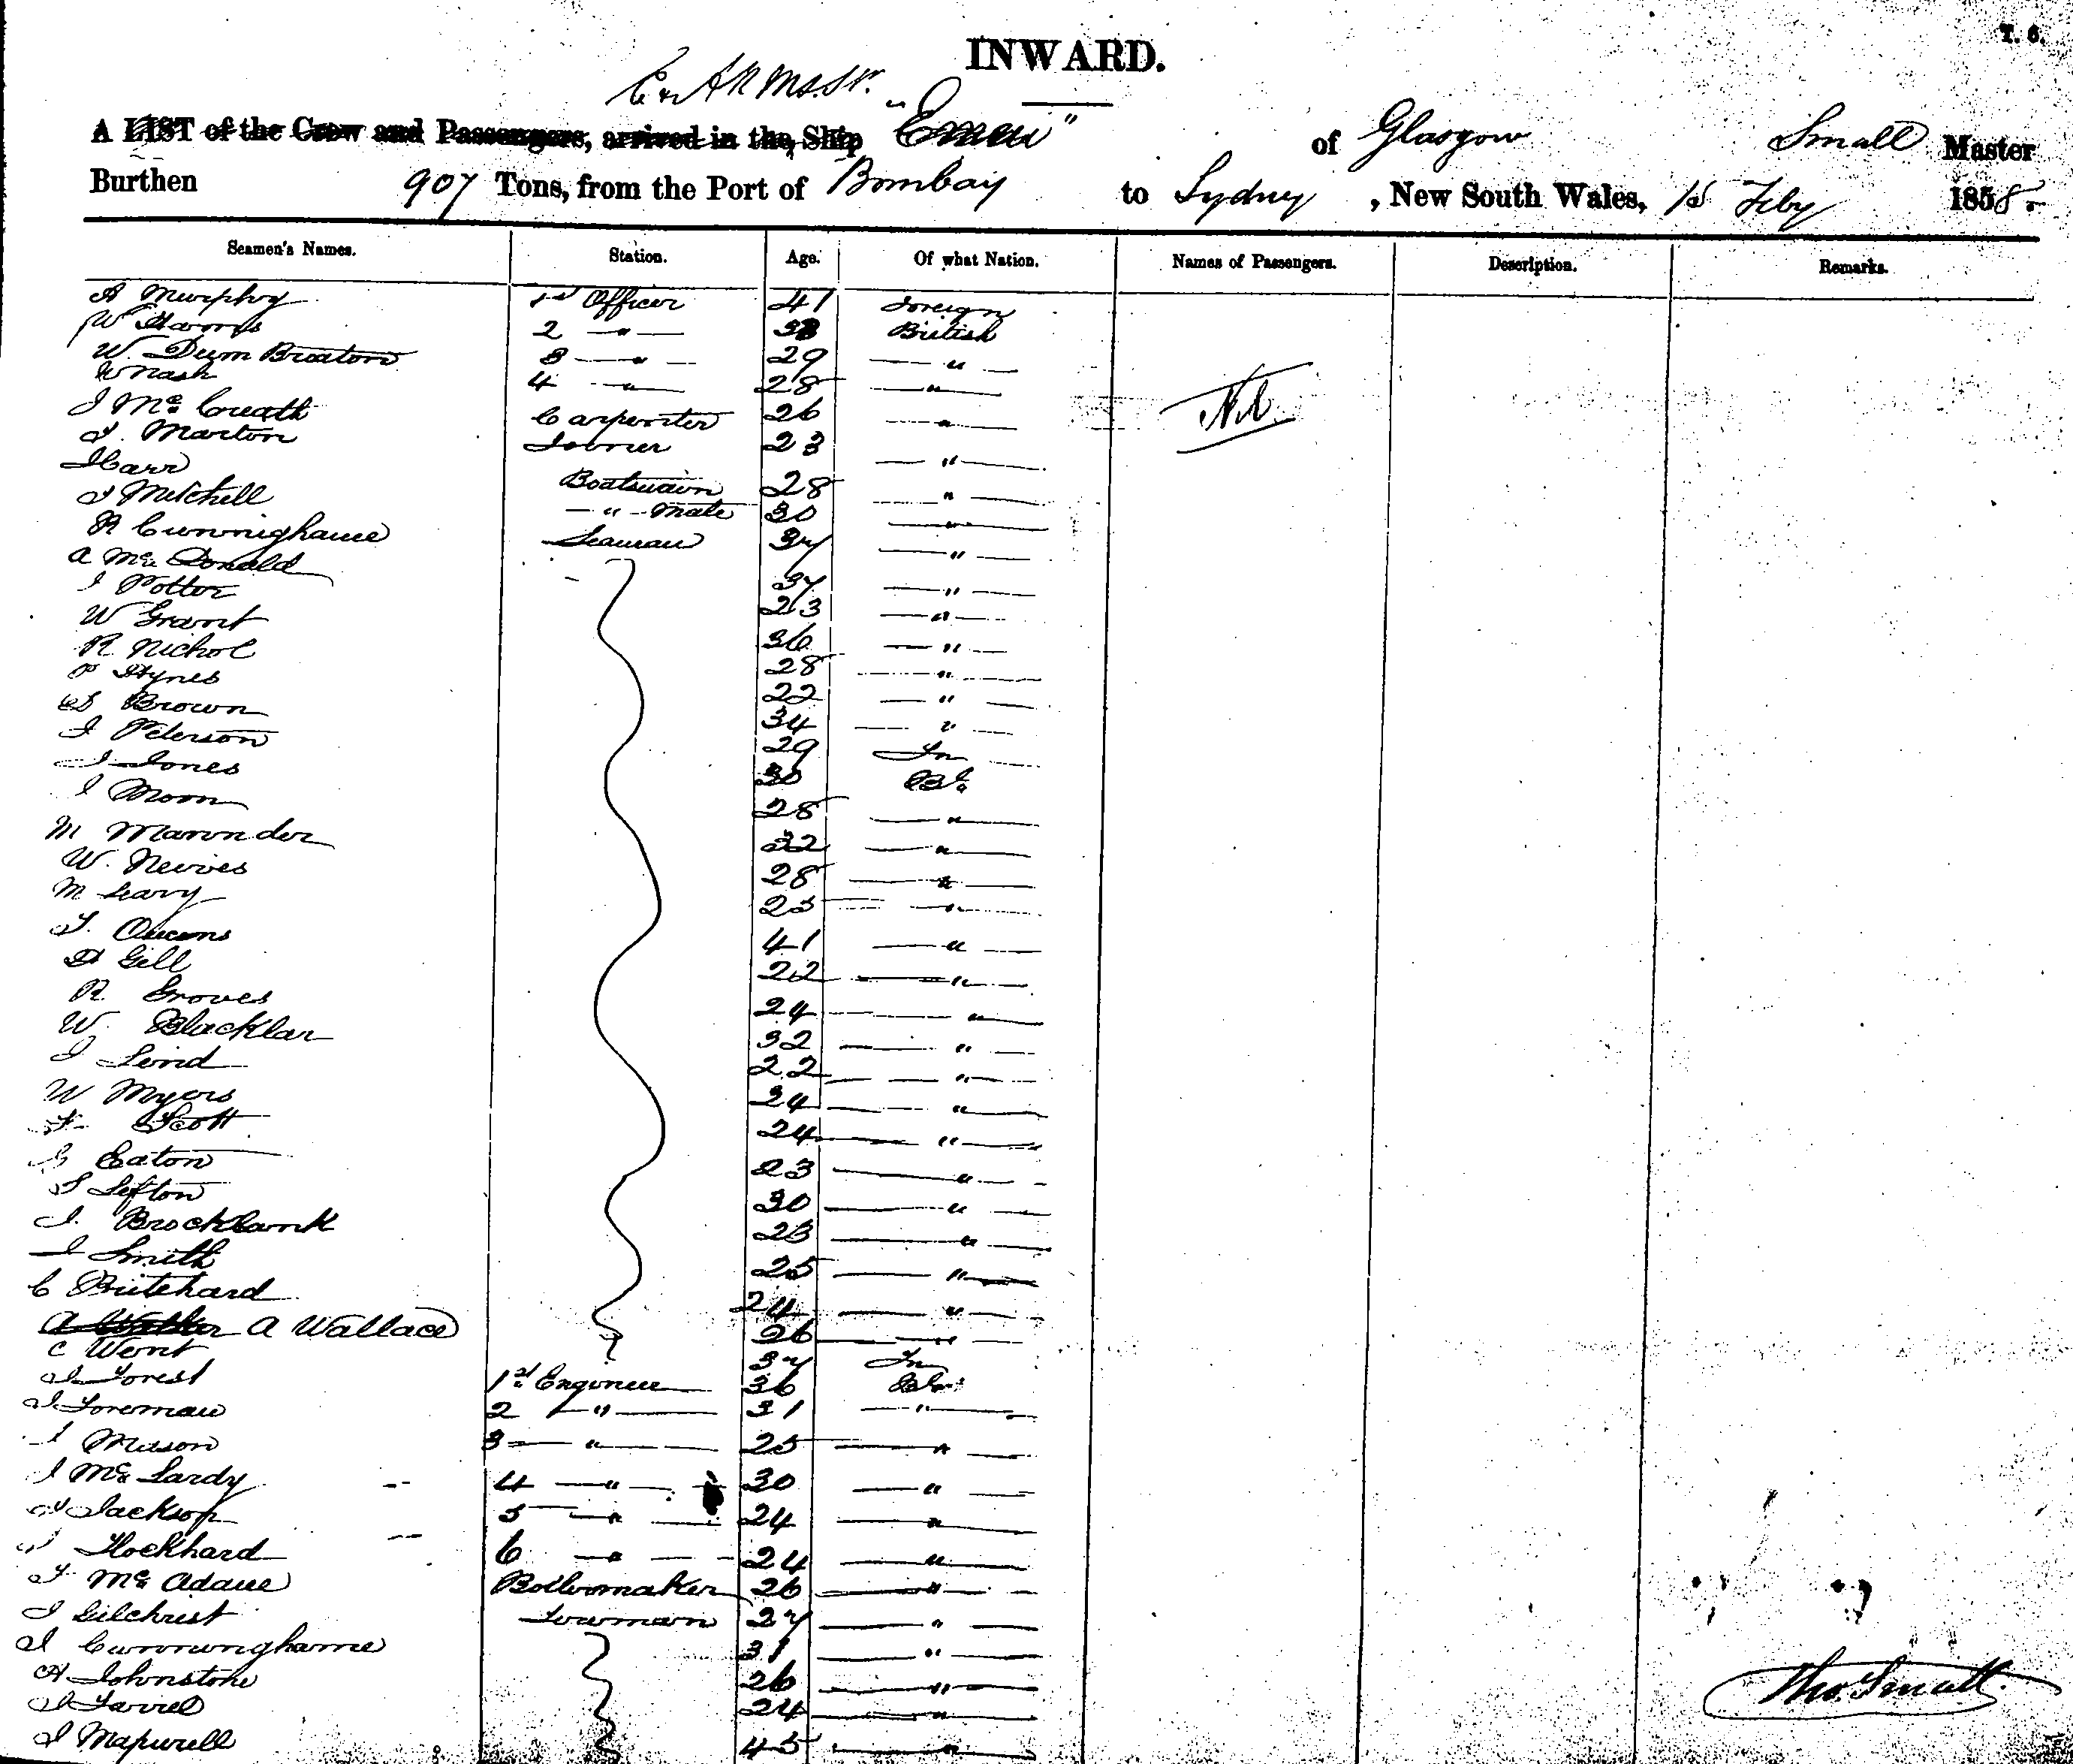 T. 6.
INWARD.
E & A R M S. Sr.
A LIST of the Crew and Passengers, arrived in the Ship "Emeu" of Glasgow Small Master
Burthen 907 Tons, from the Port of Bombay to Sydney, New South Wales, 15 Feby 1858.
Seamen's Names. Station. Age. Of what Nation. Names of Passengers. Description. Remarks.
A Murphy 1st Officer 41 Foreign
W 2 " British
W. 3 " 29 "
W Nash 4 " 28 " Nil
J Mc. Creath Carpenter 26 "
T. Marton Joiner 23 "
J Carr Boatswain 28 "
J Mitchell " Mate 30 "
R Cunninghame Seaman 37 "
A Mc. Donald 37 "
J Potter 23 "
W Grant 36 "
R Nichol 28 "
P Hynes 22 "
Brown 34 "
J Peterson 29 Fn
J Jones 30 Bh.
J Moon 28 "
M 32 "
W. 28 "
M Leary 25 "
T. Owens 41 "
H Gill 22 "
R. Groves 24 "
W. Blacklar 32 "
J 22 "
W Myers 34 "
F Scott 24 "
G Eaton 23 "
S Sefton 30 "
J. Brocklank 23 "
J Smith 25 "
C Pritchard 24 "
A Walker A Wallace 26 "
C Went 37 Fn
J Forest 1st Engineer 36 Bh.
J Foreman 2 " 31 "
J Mason 3 " 25 "
J Mc. Lardy 4 " 30 "
T Jackson 5 " 24 "
J Hockhard 6 " 24 "
T. Mc. Adam Boilermaker 26 "
J Gilchrist 27 "
J Cunninghame 31 "
A Johnstone 26 "
J Farrel 24 "
J 45 "
Thos. Small.